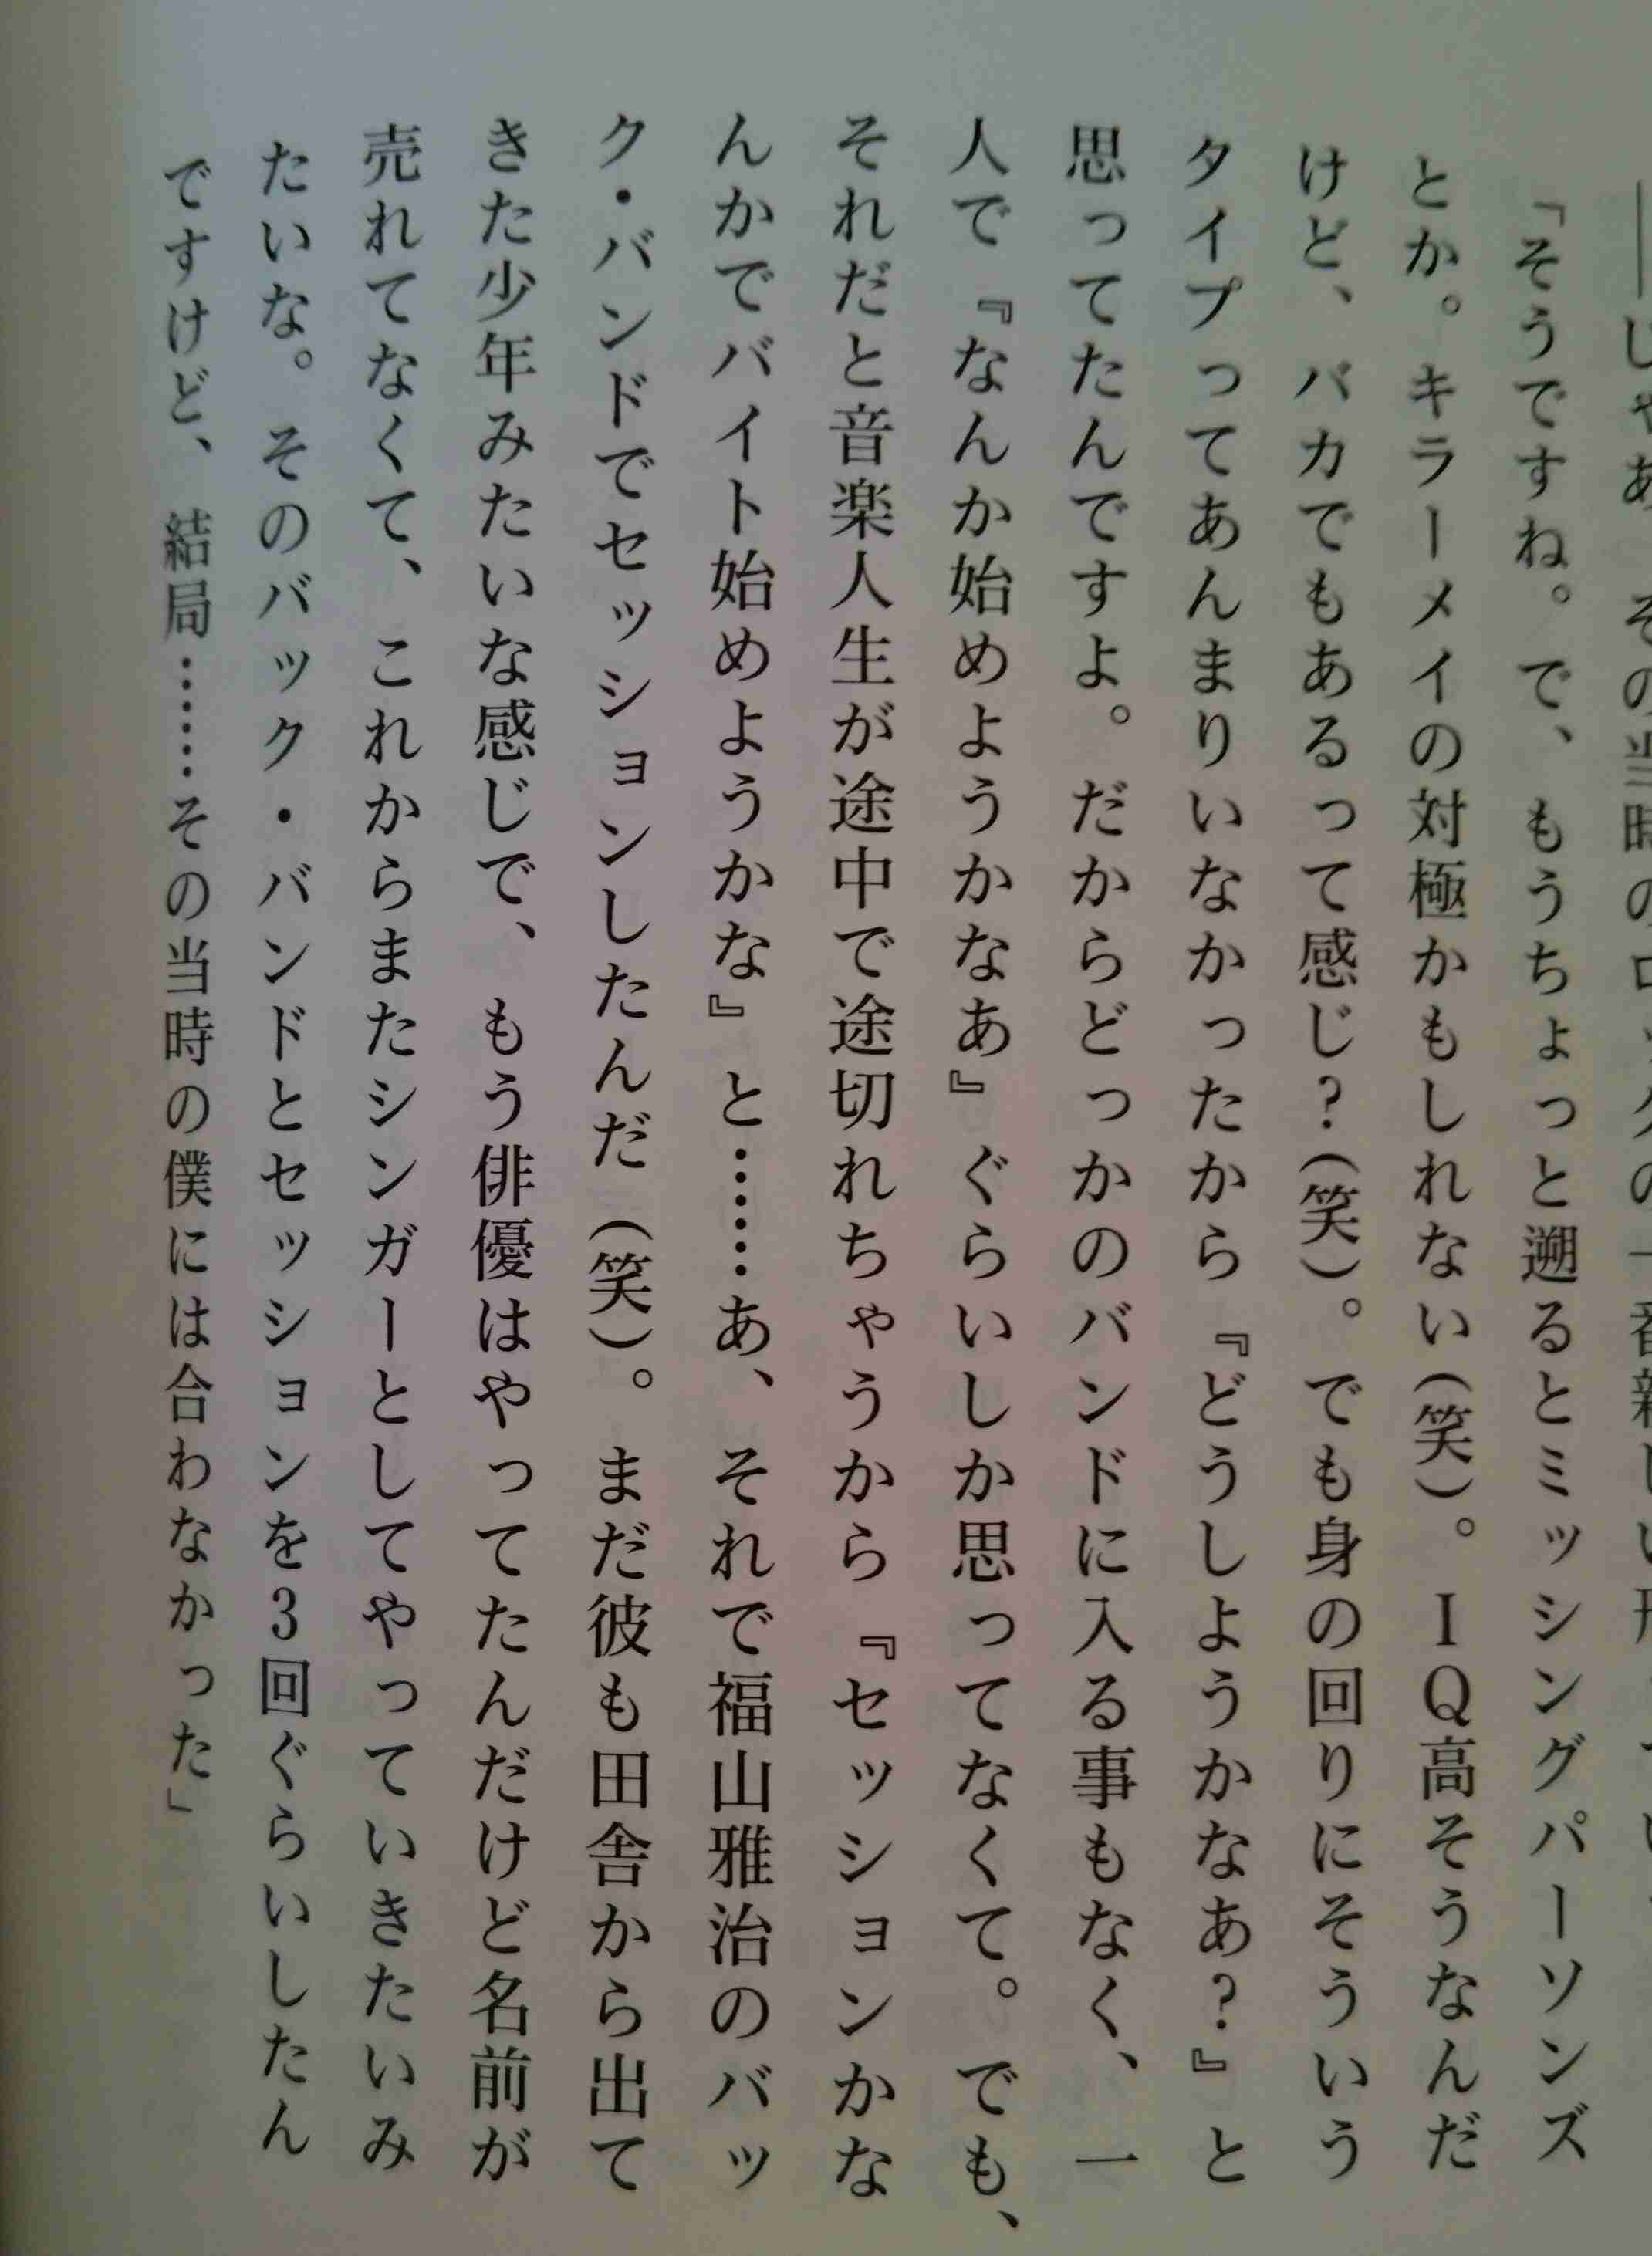 ――じゃあ、その当時のロックの一番新しい形
「そうですね。で、もうちょっと遡るとミッシングパーソンズ
とか。キラーメイの対極かもしれない(笑)。IQ高そうなんだ
けど、バカでもあるって感じ?(笑)。でも身の回りにそういう
タイプってあんまりいなかったから『どうしようかなあ?』と
思ってたんですよ。だからどっかのバンドに入る事もなく、一
人で『なんか始めようかなあ』ぐらいしか思ってなくて。でも、
それだと音楽人生が途中で途切れちゃうから『セッションかな
んかでバイト始めようかな』と……あ、それで福山雅治のバッ
ク・バンドでセッションしたんだ(笑)。まだ彼も田舎から出て
きた少年みたいな感じで、もう俳優はやってたんだけど名前が
売れてなくて、これからまたシンガーとしてやっていきたいみ
たいな。そのバック・バンドとセッションを3回ぐらいしたん
ですけど、結局……その当時の僕には合わなかった」